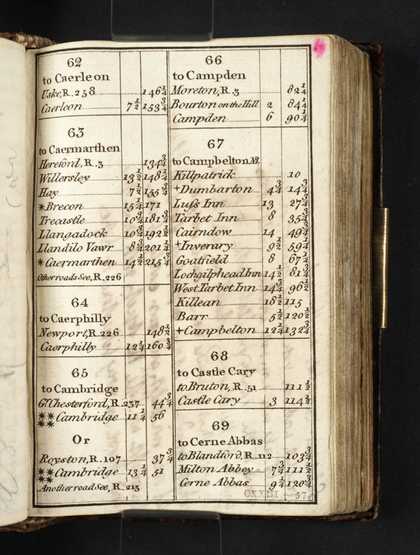 62
to Caerleon
Uske, R.258 146¼
Caerleon 7½ 153¾
63
to Caermarthen
Hereford, R.3 134¾
Willersley 13½ 148¼
Hay 7½ 155¾
*Brecon 15¼ 171
Trecastle 10¾ 181¾
Llangadock 10¾ 192½
Llandilo Vawr 8¾ 201¼
*Caermarthen 14½ 215¾
Other roads See, R.226
64
to Caerphilly
Newport, R.226 148½
Caerphilly 12¼ 160¾
65
to Cambridge
Gt. Chesterford, R.237 44¾
⁂Cambridge 11¼ 56
Or
Royston, R.107 37¾
⁂Cambridge 13¼ 51
Another road See, R.215
66
to Campden
Moreton, R.3 82¼
Bourton on the Hill 2 84¼
Campden 6 90¼
67
to Campbelton
Killpatrick 10
+Dumbarton 4¾ 14¾
Luss Inn 13 27¾
Tarbet Inn 8 35¾
Cairndow 14 49¾
+Inverary 9½ 59¼
Goatfield 8 67¼
Lochgilphead Inn 14½ 81¾
West Tarbet Inn 14¾ 96½
Killean 18½ 115
Barr 5½ 120½
+Campbelton 12¼ 132¾
68
to Castle Cary
to Bruton, R.51
Castle Cary 3
69
to Cerne Abbas
to Blandford, R.112 103¾
Milton Abbey 7¾ 111½
Cerne Abbas 9¼ 120¾